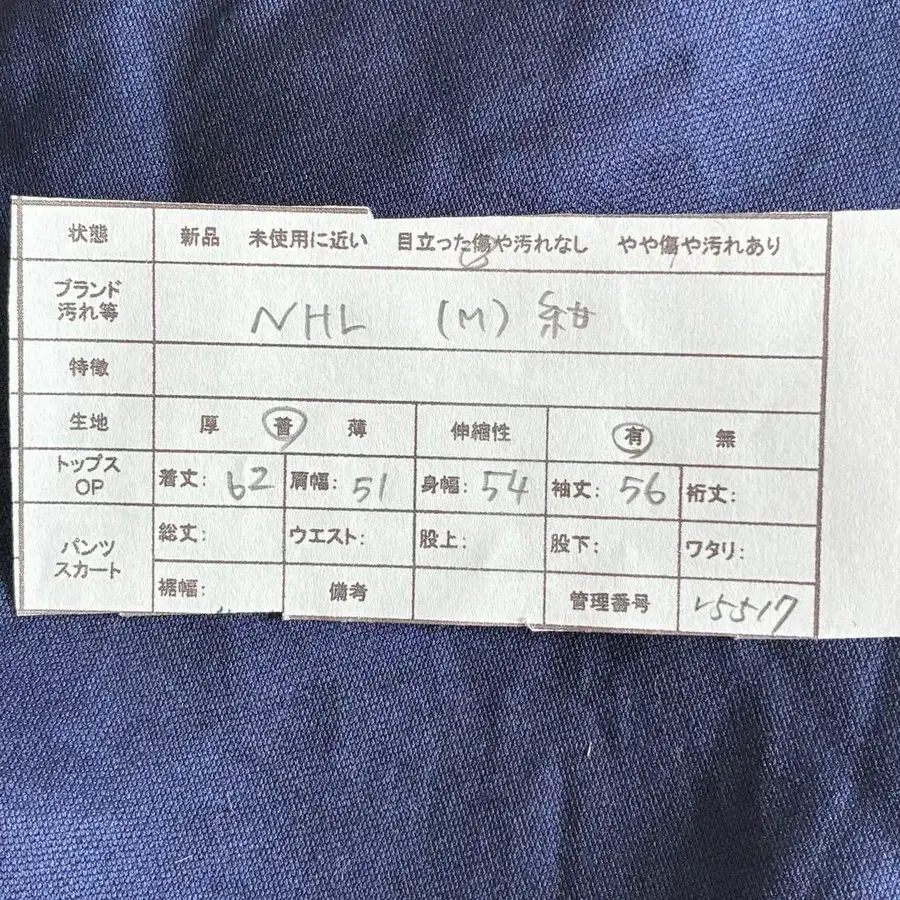 状態 新品 未使用に近い 目立った傷や汚れなし やや傷や汚れあり
ブランド
汚れ等
NHL (M) 紺
特徴
生地 厚 普 薄 伸縮性 有 無
トップス
OP
着丈: 62 肩幅: 51 身幅: 54 袖丈: 56 裄丈:
パンツ
スカート
総丈: ウエスト: 股上: 股下: ワタリ:
裾幅: 備考 管理番号 v5517